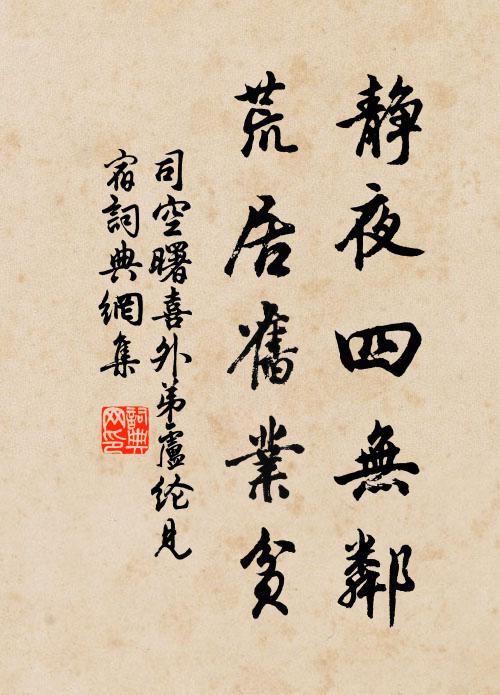 靜夜四無鄰
荒居舊業貧
司空曙喜外弟盧纶見
宿詞典網集
詞典
网印